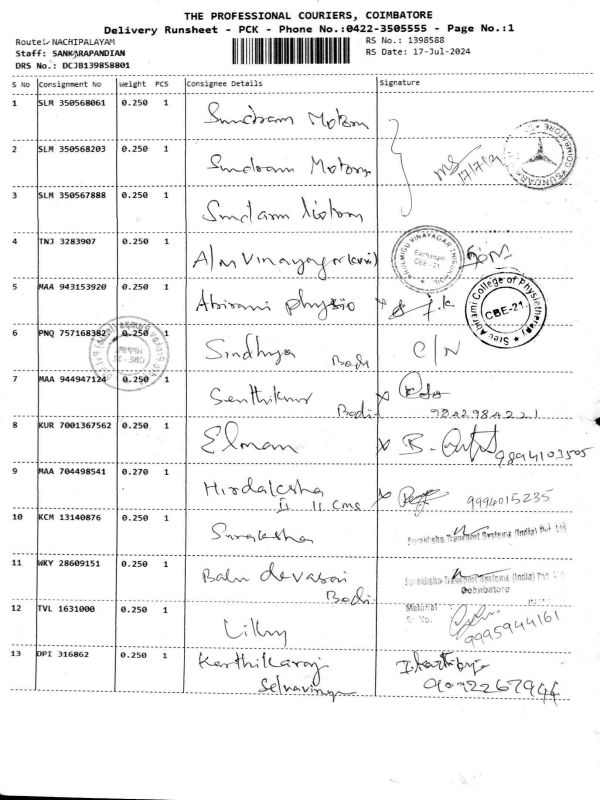 THE PROFESSIONAL COURIERS, COIMBATORE
Delivery Runsheet - PCK - Phone No.:0422-3505555 - Page No.:1
Route: NACHIPALAYAM
RS No.: 1398588
Staff: SANKARAPANDIAN
RS Date: 17-Jul-2024
DRS No.: DCJB139858801
S No Consignment No Weight PCS Consignee Details Signature
1 SLM 350568061 0.250 1 Sundram Motors
2 SLM 350568203 0.250 1 Sundram Motors
3 SLM 350567888 0.250 1 Sundarm Motors
4 TNJ 3283907 0.250 1 A/m Vinayagar
CBE - 21
5 MAA 943153920 0.250 1 Abirami Physio
Sree Abirami College of Physiotherapy
CBE-21
6 PNQ 757168382 0.250 1 Sindhya C/N
Bodi
7 MAA 944947124 0.250 1 Senthilkumar
Bodi 9842984221
8 KUR 7001367562 0.250 1 Elmam 9894103505
9 MAA 704498541 0.270 1 Hirdaksha
II 11 cms 9994015235
10 KCM 13140876 0.250 1 Suraksha
Surakksha Transport Systems (India) Pvt. Ltd
11 WKY 28609151 0.250 1 Balu devasari
Bodi
Surakksha Transport Systems (India) Pvt. Ltd
Coimbatore
12 TVL 1631000 0.250 1
Material
Sr. No.
9995944161
13 DPI 316862 0.250 1 Karthikaraj
Selvavinya
9092267944